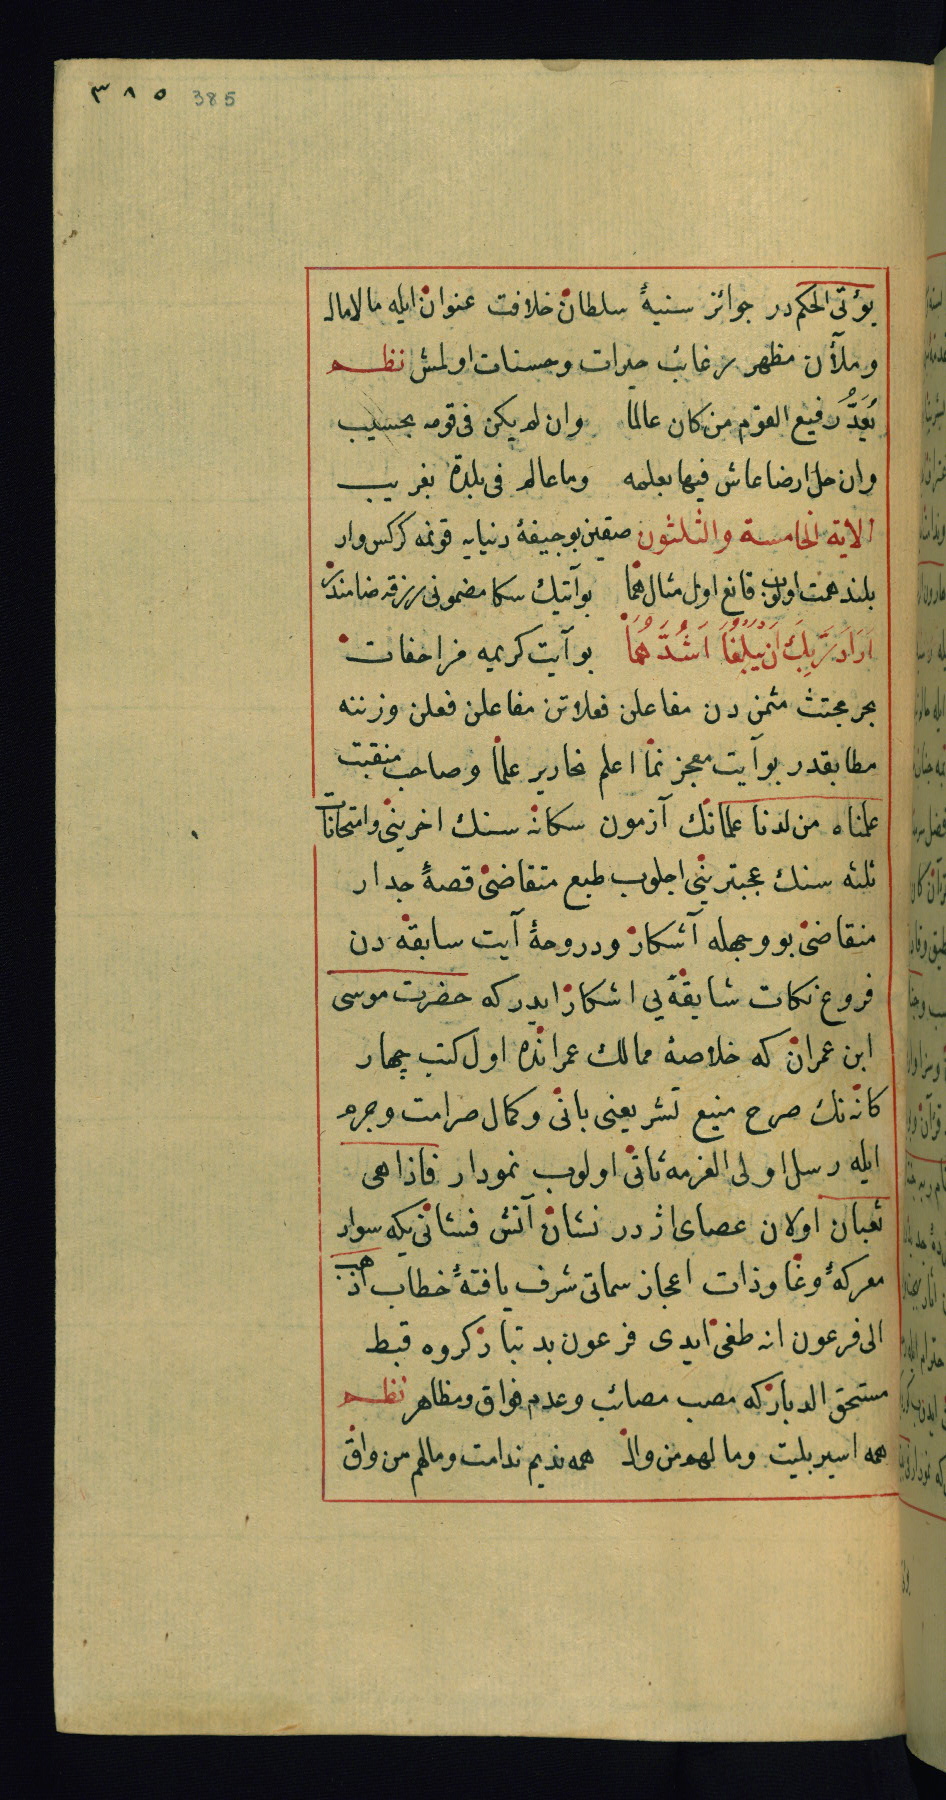 ٣٨٥ 385
يؤتى الحكم در جوائز سنيهٔ سلطان خلافت عنوان ايله مالامال
وملآن مظهر رغائب حيرات وحسنات اولمش نظم
يُعَدُّ رفيع القوم من كان عالما وان لم يكن فى قومه بحسيب
وان حل ارضا عاش فيها بعلمه وما عالم فى بلدة بغريب
الاية الخامسة والثلثون صقين بو جيفهٔ دنيايه قونمه كركس وار
بلند همت اولوب قانع اول مثال هما بو آيتيك سكا مضمونى رزقه ضامندر
اَرَادَ رَبُّكَ اَنْ يَبْلُغَا اَشُدَّهُمَا بو آيت كريمه مزاحفات
بحر مجتث مثمن دن مفاعلن فعلاتن مفاعلن فعلن وزننه
مطابقدر بو آيت معجز نما اعلم نحارير علما وصاحب منقبت
علمناه من لدنا علمانك آزمون سكانه سنك اخرينى وامتحانات
ثلثه سنك عجبترينى اجلوب طبع متقاضئ قصهٔ جدار
منقاضئ بو وجهله آشكار ودروحهٔ آيت سابقه دن
فروغ نكات شايقه يى اشكار ايدر كه حضرت موسى
ابن عمران كه خلاصهٔ ممالك عمرانده اول كتب چهار
كانه نك صرح منيع تشريعنى بانى وكمال صرامت وجرم
ايله رسل اولى العزمه ثانى اولوب نمودار فاذا هى
ثعبان اولان عصاى اژدر نشان آتش فشانى يكه سوار
معركهٔ وغا وذات اعجاز سماتى شرف يافتهٔ خطاب اذهب
الى فرعون انه طغى ايدى فرعون بد تبار كروه قبط
مستحق الدبار كه مصب مصائب وعدم فواق ومظاهر نظم
همه اسير بليت وما لهم من وال همه نديم ندامت وما لهم من واق